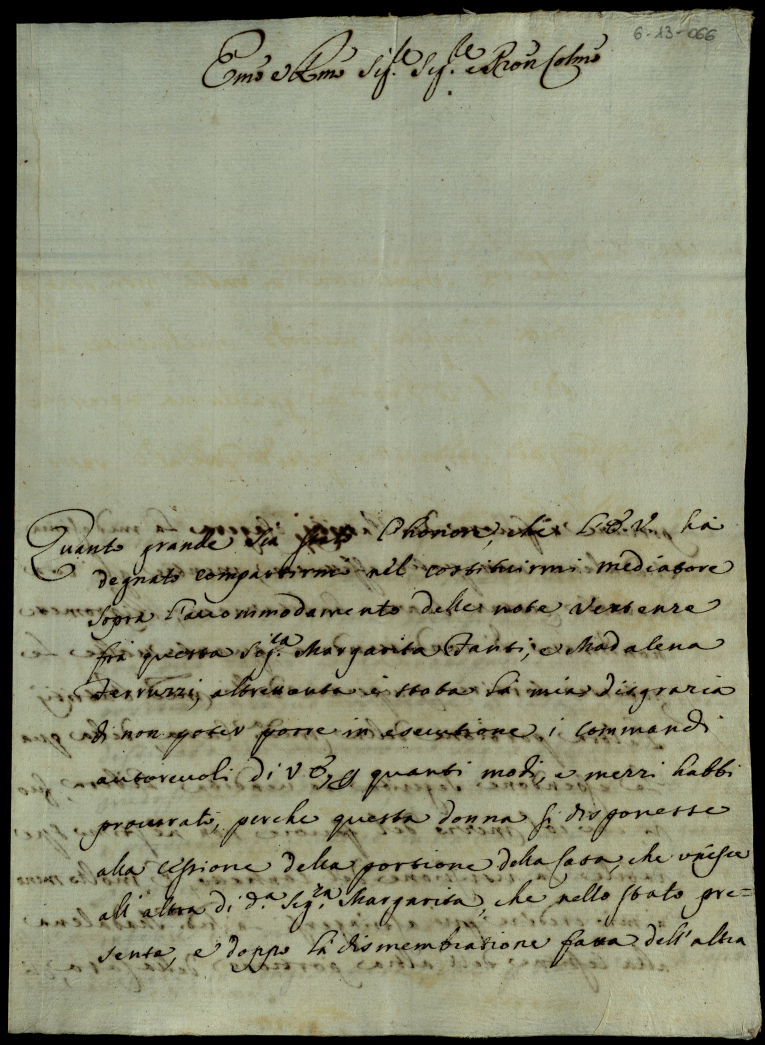 6-13-066
Em̃o e Rm̃o Sig.re Sig.re e Pron Colmo
Quanto grande sia stato l'honore, che l'E.V. hà
degnato compartirmi nel costituirmi mediatore
sopra l'accommodamento delle note vertenze
frà questa Sig.ra Margarita Fanti, e Madalena
Ferruzzi, altretanta è stata la mia disgrazia
di non poter porre in esecutione i commandi
autorevoli di V E, quanti modi, e mezzi habbi
procurati, perche questa donna si disponesse
alla cessione della portione della Casa, che unisce
all'altra di d.a Sig.ra Margarita, che nello stato pre=
sente, e doppo la dismembratione fatta dell'altra